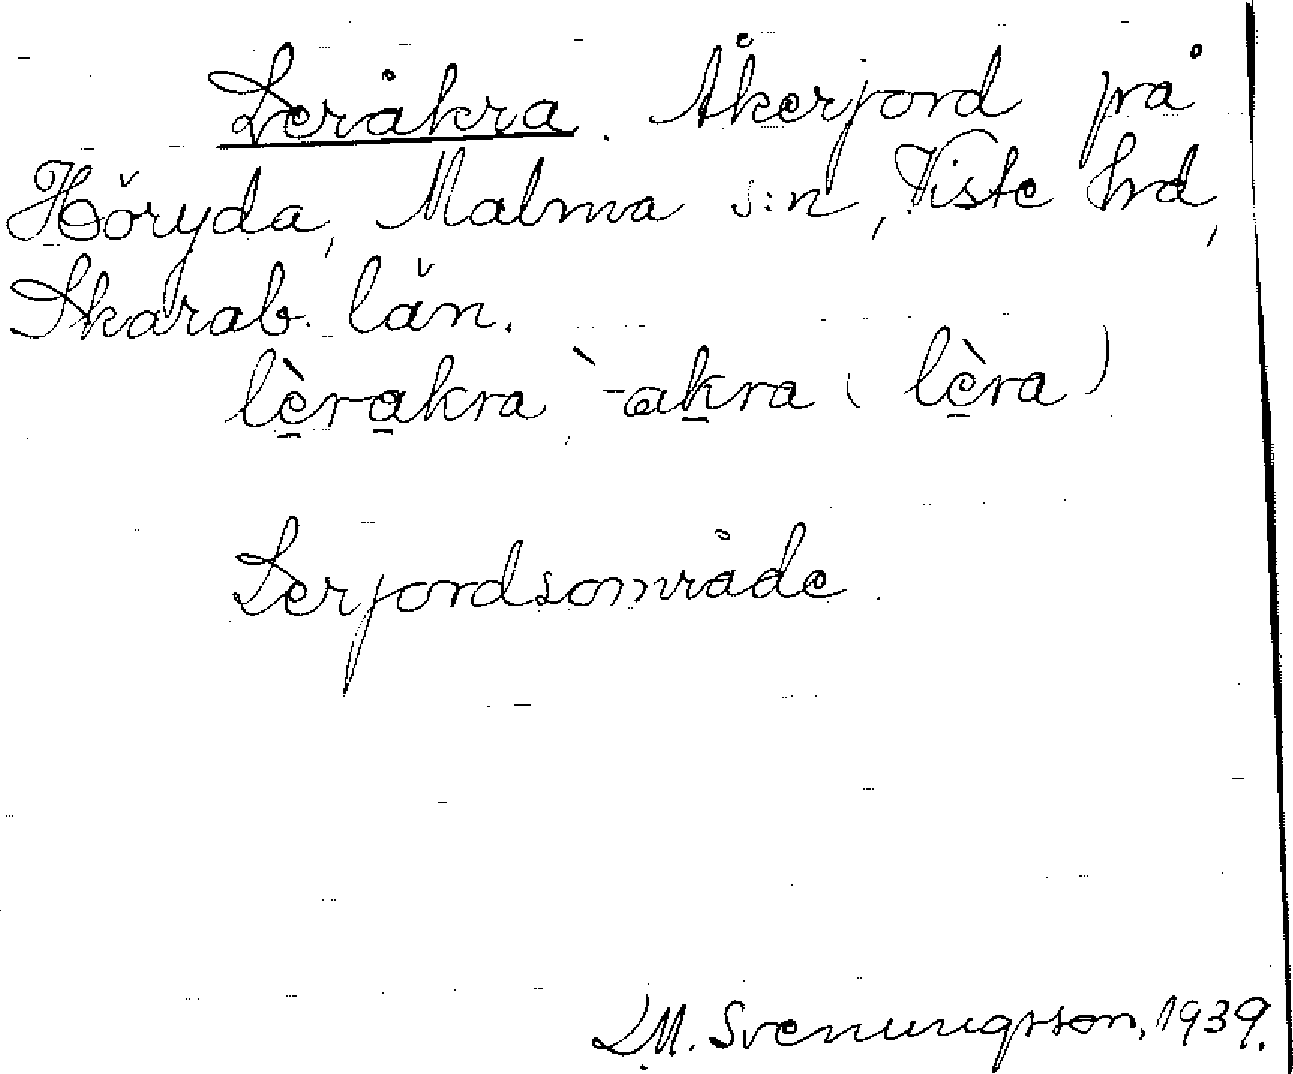 Leråkra. Åkerjord på
Höryda, Malma s:n, Viste hrd,
Skarab. län.
lèrakra, `-akra (lèra)
Lerjordsområde.
LM. Svenungsson, 1939.